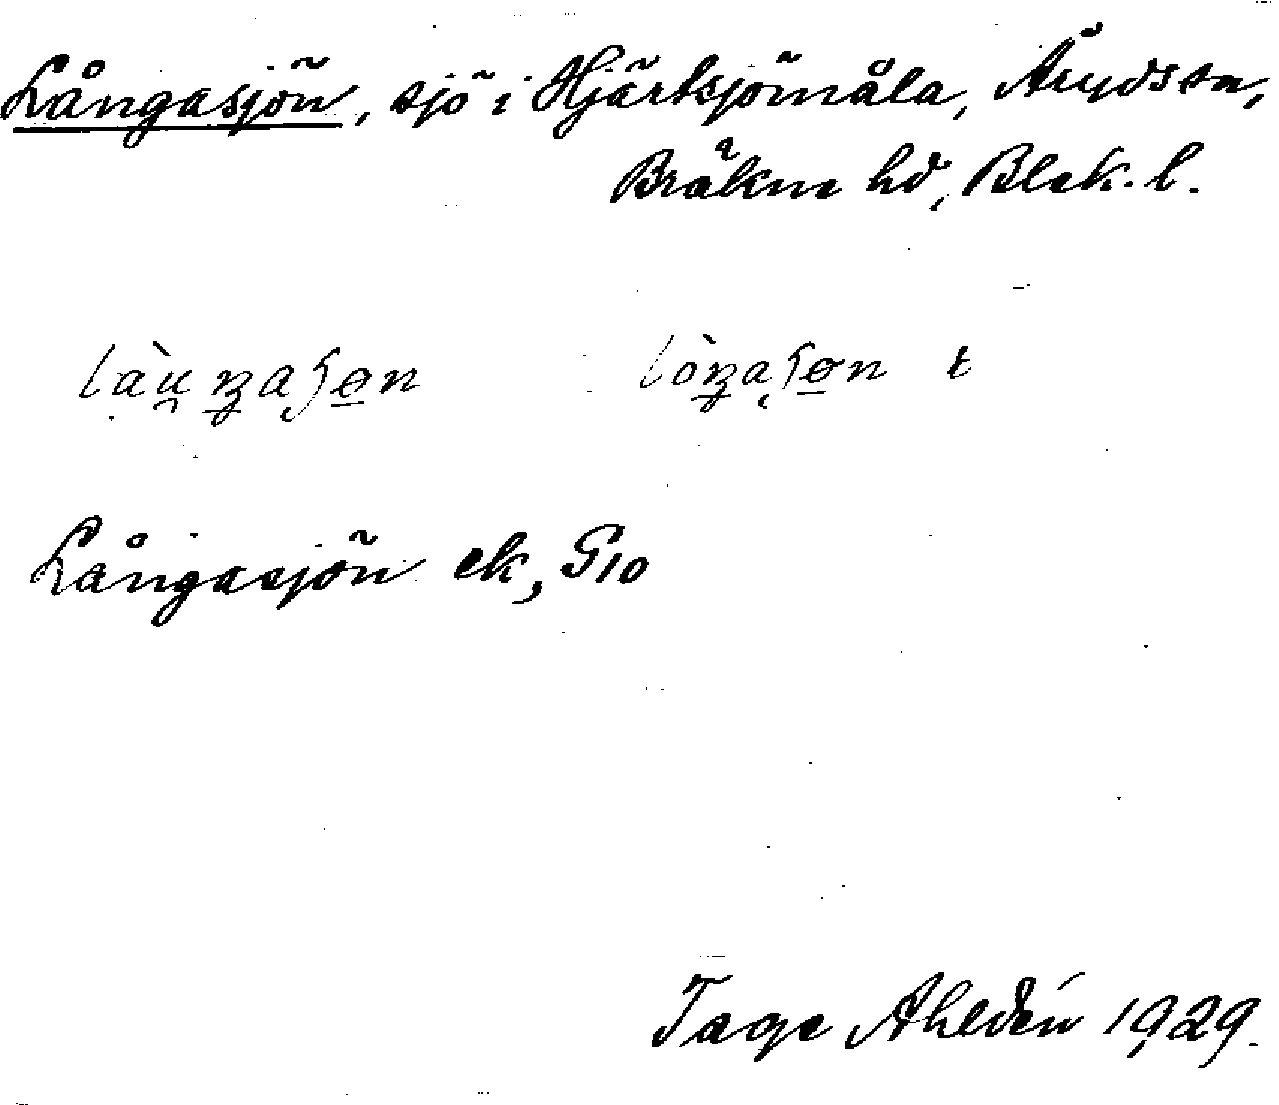 Långasjön, sjö i Hjärtsjömåla, Åryds sn,
Bräkne hd, Blek. l.
làu̯ŋa̢ʃøn lòŋa̢ʃøn t
Långasjön ek, G10
Tage Ahldén 1929.